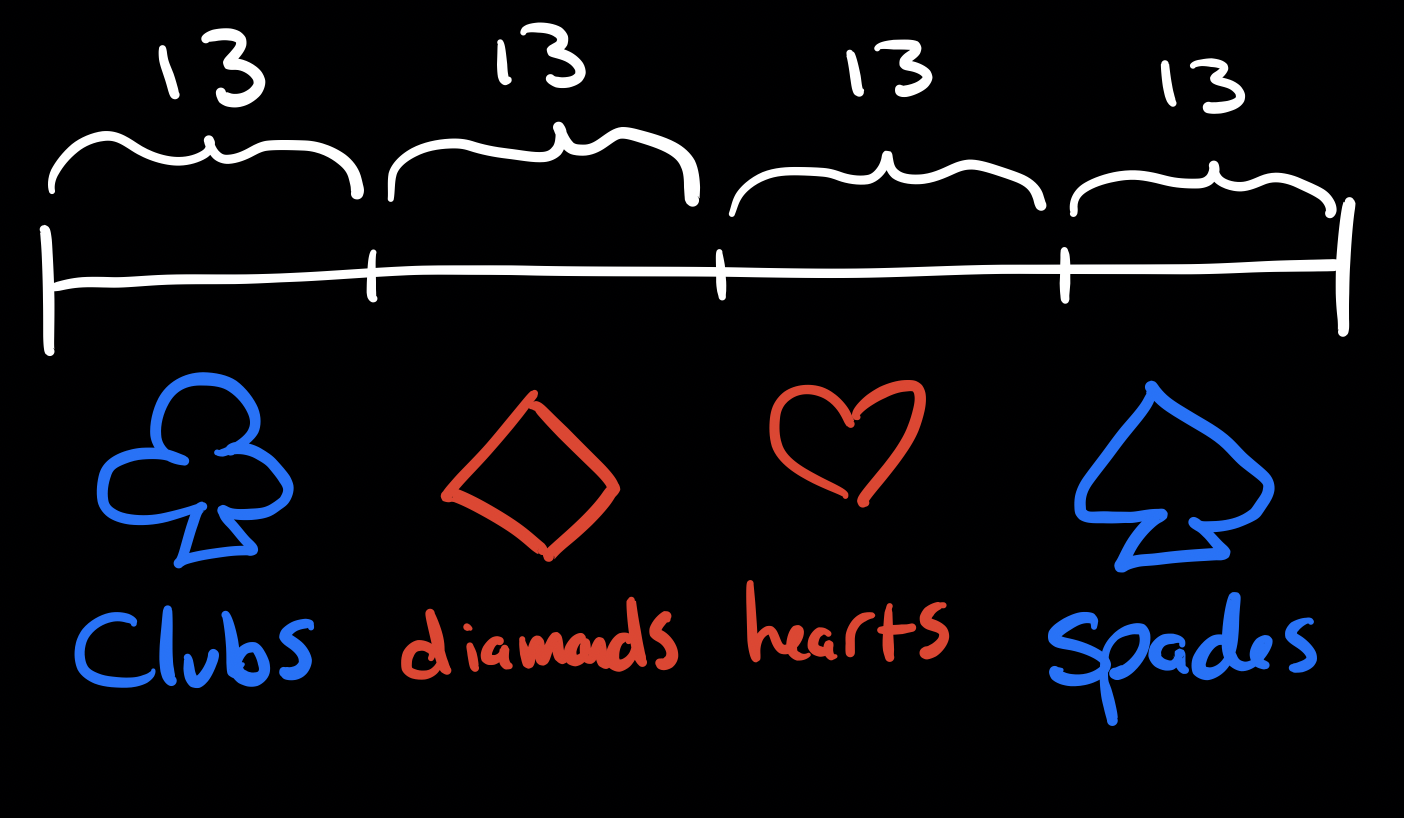 13 13 13 13
Clubs diamonds hearts Spades